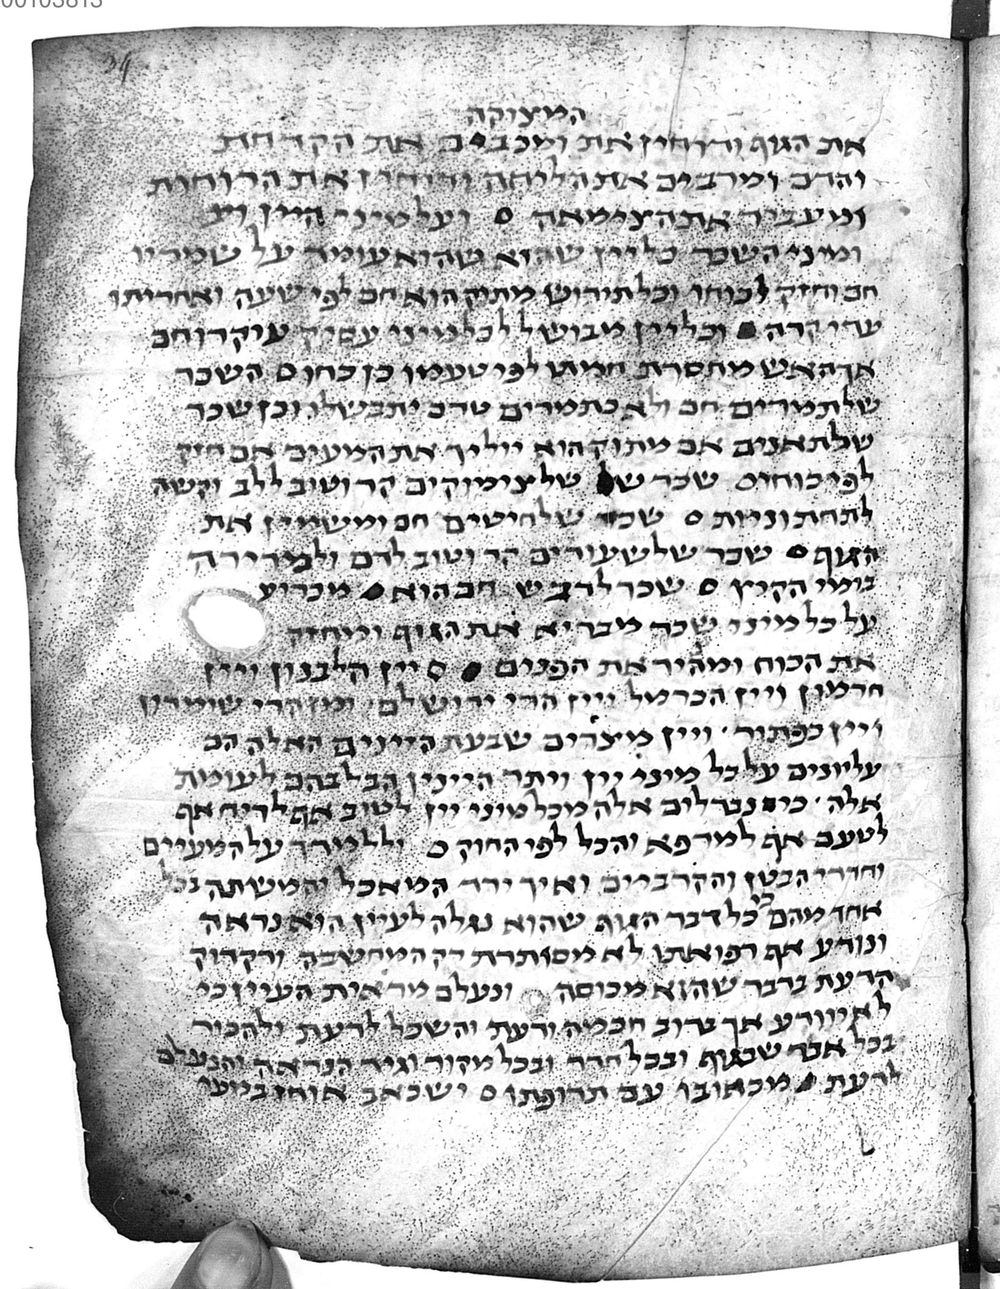 00103813
34
המצוקה
את הגוף ודוחין את ומכבים את הקדחת
והדם ומרבים את הליחה ודוחין את הרוחות
ומעביר את הצימאה ס ועל מיני היין
ומיני השכר כל יין שהוא שהוא עומד על שמריו
חם וחזק לכוחו וכל תירוש מתוק הוא חם לפי שעה ואחריתו
עדי קרה וכל יין מבושל לכל מיני עסיק עיקרו חם
אך האש מחסרת חמתו לפי טעמו כן כחו ס השכר
של תמרים חם ולא כתמרים טרם יתבשלו וכן שכר
של תאנים אם מתוק הוא יוליך את המעים אם חזק
לפי כוחו ס שכר של צימוקים קר וטוב ללב וקשה
לתחתוניות ס שכר של חיטים חם ומשמין את
הגוף ס שכר של שעורים קר וטוב לדם ולמרירה
בימי הקיץ ס שכר לדבש חם הוא מכריע
על כל מיני שכר מבריא את הגוף ומחזק
את הכוח ומהיר את הפנים ס יין הלבנון ויין
חרמון ויין הכרמל ויין הרי ירושלם ומן הרי שומרון
ויין כפתור ויין מיצרים שבעת הזיינים האלה הם
עליונים על כל מיני יין ויתר היינין הבל בהם לעומת
אלה כי נבדלים אלה מכל מיני יין לטוב אף לריח אף
לטעם אף למרפא והכל לפי החוק ס וללמדך על המעיים
וחדרי הבטן והקרבים ואיך ירד המאכל והמשתה בכל
אחד מהם כי כל דבר הגוף שהוא נגלה לעיין הוא נראה
ונודע אף רפואתו לא מסותרת רק המחשבה ודקדוק
הדעת בדבר שהוא מכוסה ונעלם מראית העיין כי
לא יוודע אך ברוב חכמה ודעת והשכל לדעת ולהכיר
בכל אבר שבגוף ובכל חדר ובכל מקור וגיד הנראה והנעלם
לדעת מכאובו עם תרופתו ס יש כאב אוחז במעי